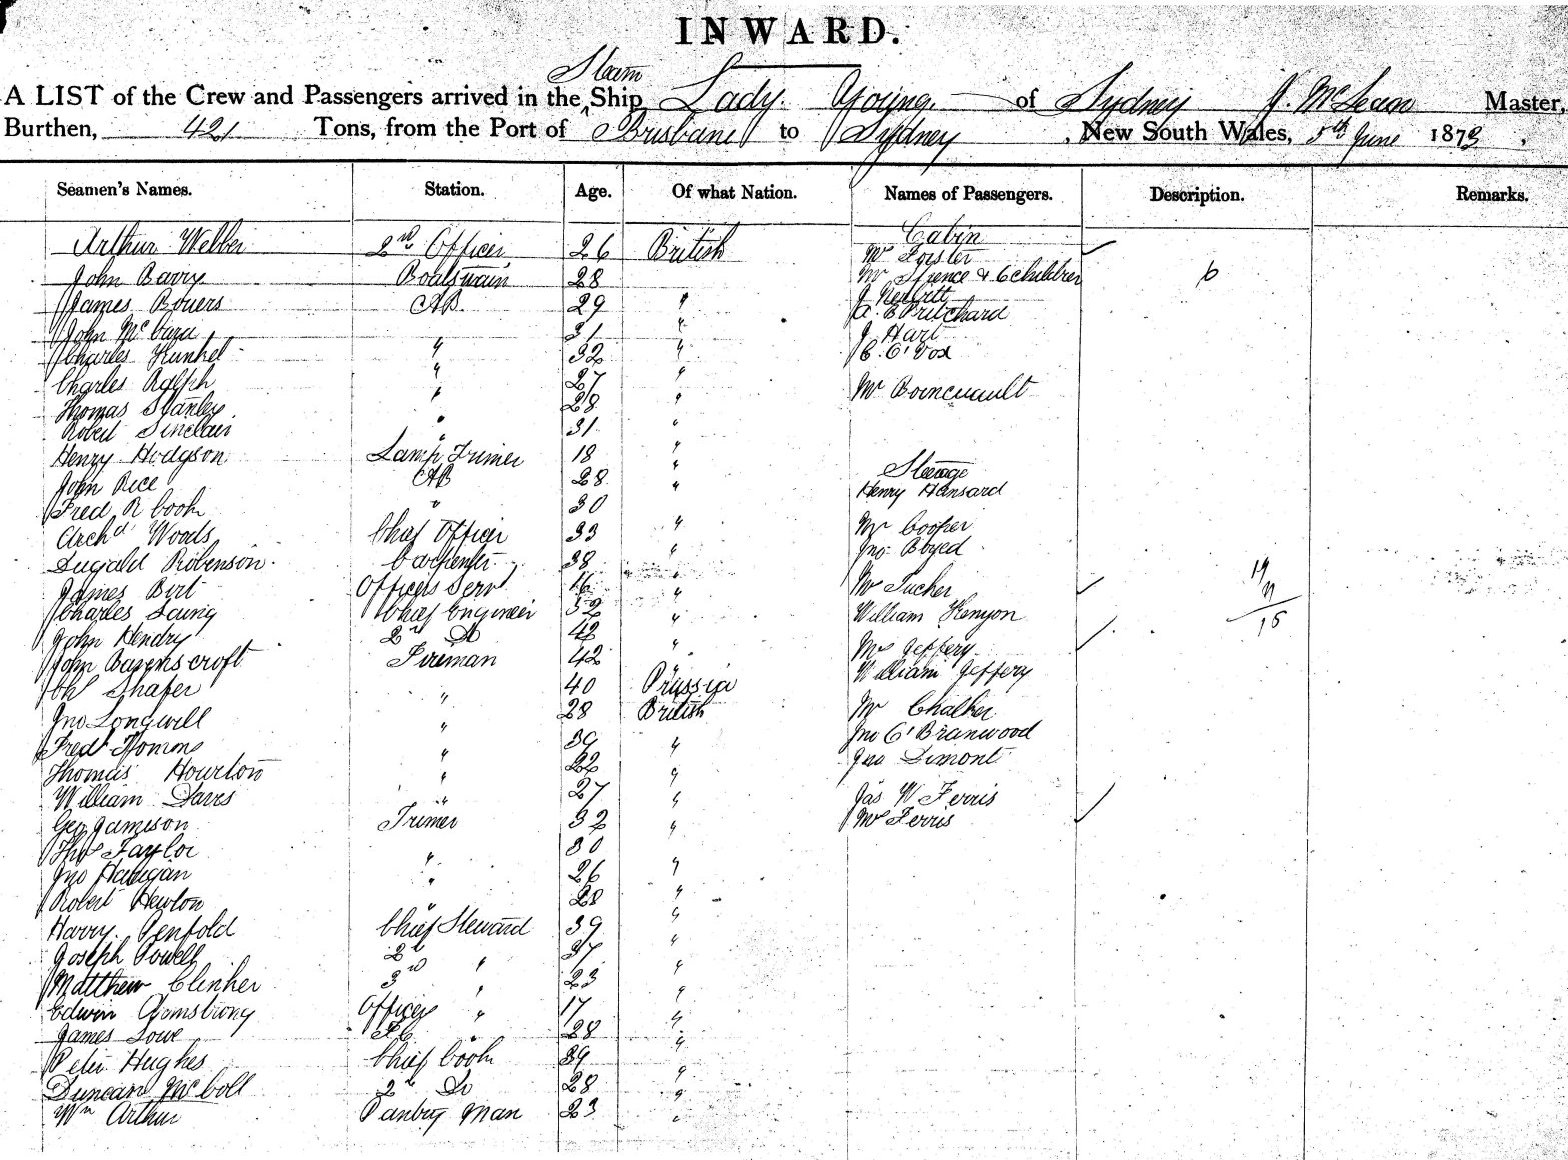 INWARD.
Steam
A LIST of the Crew and Passengers arrived in the Ship Lady Young of Sydney J. McLean Master,
Burthen, 421 Tons, from the Port of Brisbane to Sydney, New South Wales, 5th June 1873,
Seamen's Names. Station. Age. Of what Nation. Names of Passengers. Description. Remarks.
Cabin
Arthur Webber 2nd Officer 26 British Mr Forster
John Barry Boatswain 28 Mr Spence & 6 children 6
James Bowers AB. 29 " J
A. E Pritchard
John Mc 31 " J Hart
Charles Kunkel " 32 " C.
Charles Ralph " 27 " Mr
Thomas Stanley " 28 "
Robert Sinclair " 31 "
Henry Hodgson Lamp Trimer 18 " Steerage
John Rice AB 28 " Henry Hansard
Fred R Cook " 30 "
Archd Woods Chief Officer 33 " Mr Cooper
Dugald Robinson Carpenter 38 " Jno Boyed
James Birt Officers Servt 16 " Mr Tucker
Charles Laing Chief Engineer 52 " William Kenyon 15
John Hendry 2nd Do 42 " Mrs Jeffery
John Fireman 42 " William Jeffery
Chs Shafer " 40 Prussia
Jno Longwill " 28 British Mr Chalker
Fredk " 39 " Jno
Thomas Hourton " 22 " Jno Dimont
William Davis " 27 " Jas W Ferris
Geo Jamison Trimer 32 " Mrs Ferris
Thos Taylor " 30
Jno " 26 "
Robert Hewton " 28 "
Harry Penfold Chief Steward 39 "
Joseph Powell 2nd " 37 "
Matthew Clinker 3rd " 23 "
Edwin Armstrong Officers " 17 "
James Lowe " 28 "
Peter Hughes Chief Cook 39 "
Duncan McColl 2nd Do 28 "
Wm Arthur Pantry Man 23 "